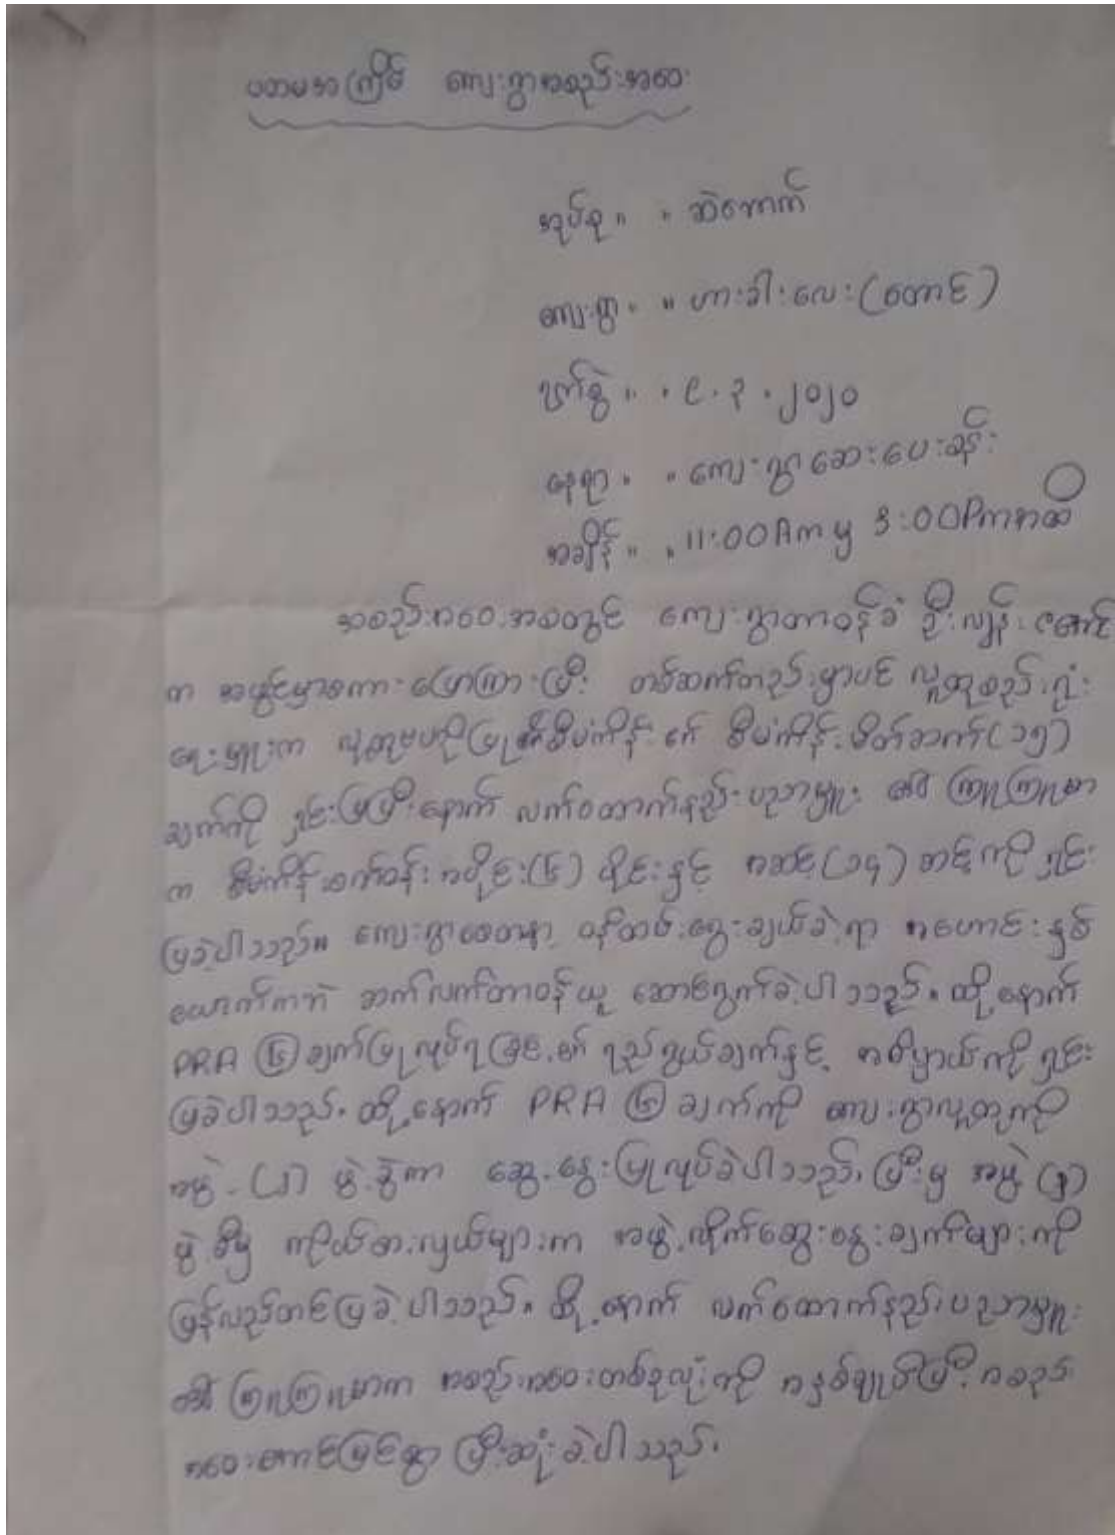 ပထမအကြိမ် ကျေးရွာအစည်းအဝေး
အုပ်စု ။ ။ ဆဲတောက်
ကျေးရွာ ။ ။ ဟားခါးလေး (တောင်)
ရက်စွဲ ။ ။ ၉ . ၃ . ၂၀၂၀
နေရာ ။ ။ ကျေးရွာဆေးပေးခန်း
အချိန် ။ ။ 11:00Am မှ 3:00Pmအထိ
အစည်းအဝေးအစတွင် ကျေးရွာတာဝန်ခံ ဦးလျန်း
က အဖွင့်မှာစကားပြောကြားပြီး တစ်ဆက်တည်းမှာပင် လူထုစည်းရုံး
ရေးမှူးက လူထုဗဟိုပြုစီမံကိန်း၏ စီမံကိန်းမိတ်ဆက်(၁၅)
ချက်ကို ရှင်းပြပြီးနောက် လက်ထောက်နည်းပညာမှူး ဒေါ်ကြူကြူမာ
က စီမံကိန်းစက်ဝန်း အပိုင်း(၆) ပိုင်းနှင့် အဆင့်(၁၄) ဆင့်ကိုရှင်း
ပြခဲ့ပါသည်။ ကျေးရွာစေတနာ့ ဝန်ထမ်းရွေးချယ်ခဲ့ရာ အဟောင်းနှစ်
ယောက်ကဘဲ ဆက်လက်တာဝန်ယူ ဆောင်ရွက်ခဲ့ပါသည်။ ထို့နောက်
PRA ⑥ ချက်ပြုလုပ်ရခြင်း၏ ရည်ရွယ်ချက်နှင့် အဓိပ္ပာယ်ကို ရှင်း
ပြခဲ့ပါသည်။ ထို့နောက် PRA ⑥ ချက်ကို ကျေးရွာလူထုကို
အဖွဲ့ (၂) ဖွဲ့ခွဲကာ ဆွေးနွေးပြုလုပ်ခဲ့ပါသည်၊ ပြီးမှ အဖွဲ့ (၂)
ဖွဲ့စီမှ ကိုယ်စားလှယ်များက အဖွဲ့လိုက်ဆွေးနွေးချက်များကို
ပြန်လည်တင်ပြခဲ့ပါသည်။ ထို့နောက် လက်ထောက်နည်းပညာမှူး
ဒေါ်ကြူကြူမာက အစည်းအဝေးတစ်ခုလုံးကို အနှစ်ချုပ်ပြီး အစည်း
အဝေးအောင်မြင်စွာ ပြီးဆုံးခဲ့ပါသည်။